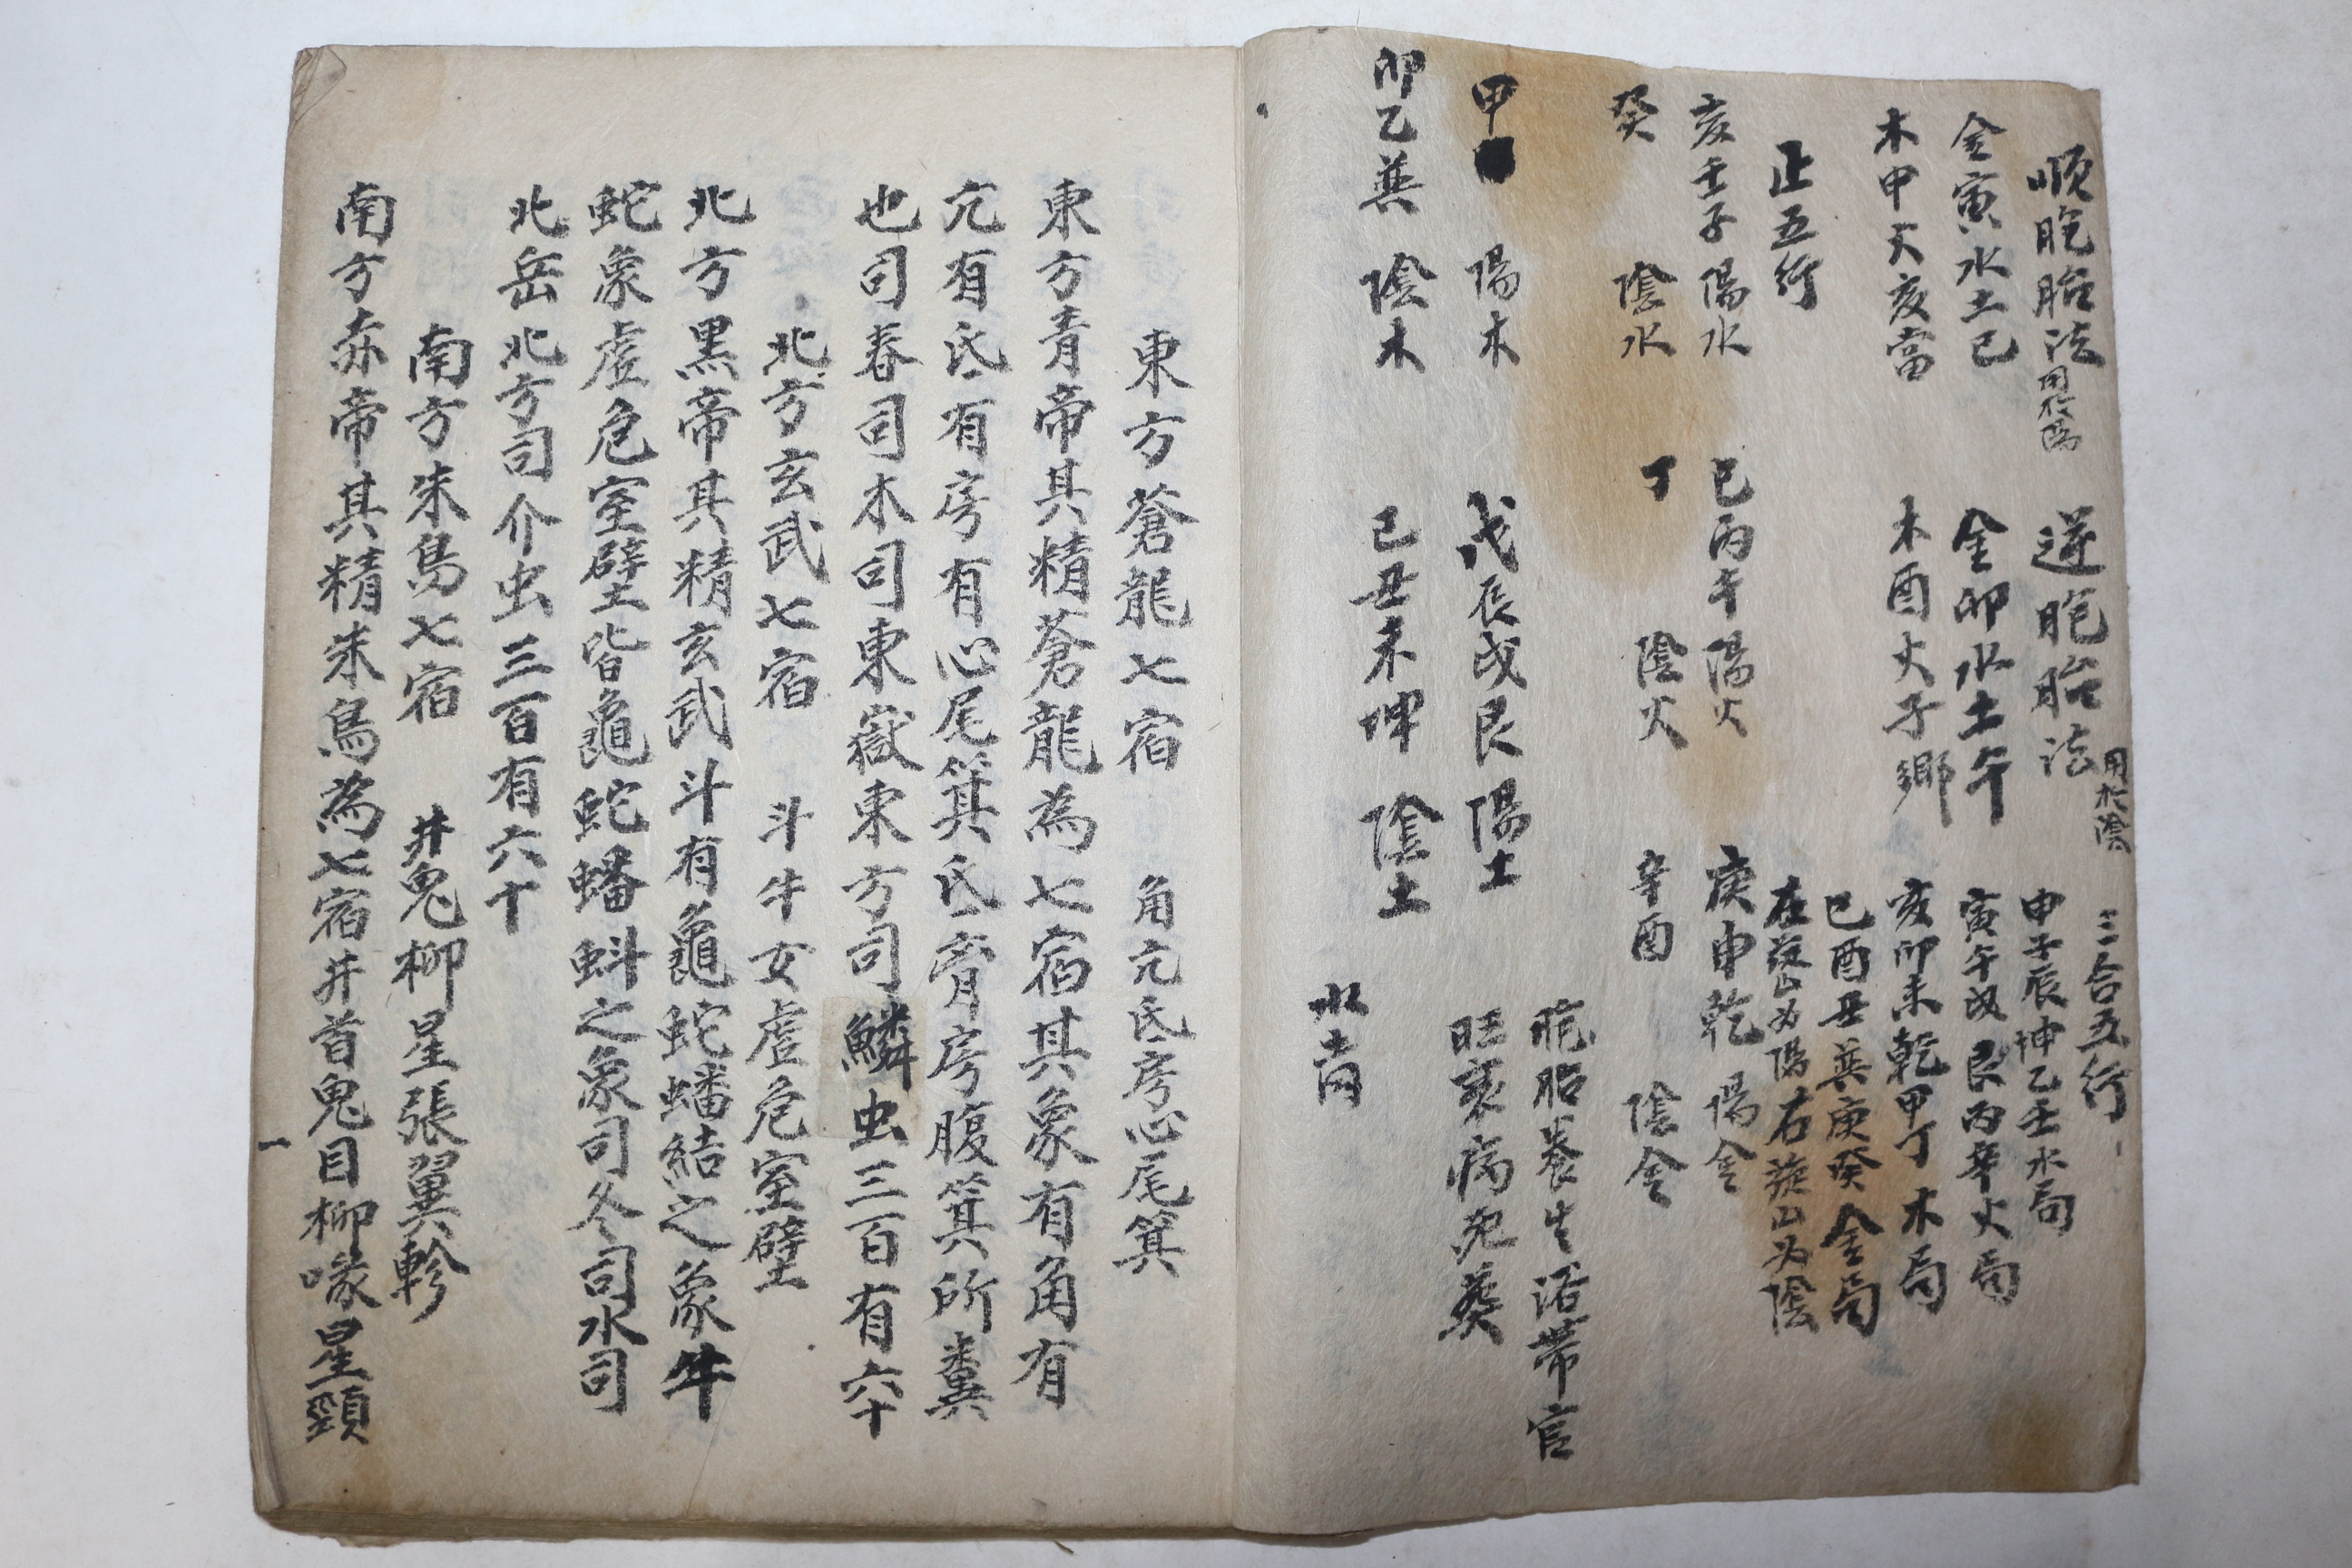 順胞胎法 用於陽
金寅水土巳
木申火亥當
逆胞胎法 用於陰
金卯水土午
木酉火子鄕
三合五行
申子辰坤乙壬水局
寅午戌艮丙辛火局
亥卯未乾甲丁木局
巳酉丑巽庚癸金局
在 山为陽右旋山为陰
正五行
亥壬子陽水
巳丙午陽火
庚申乾 陽金
癸 陰水
丁 陰火
辛酉 陰金
甲 陽木
戊辰戌艮陽土
卯乙巽 陰木
己丑未坤 陰土
胞胎養生浴帶官
旺衰病死葬
東方蒼龍七宿 角亢氐房心尾箕
東方青帝其精蒼龍為七宿其象有角有
亢有氐有房有心尾箕氐膏房腹箕所糞
也司春司木司東嶽東方司鱗虫三百有六十
北方玄武七宿 斗牛女虛危室壁
北方黑帝其精玄武斗有龜蛇蟠結之象牛
蛇象虛危室壁皆龜蛇蟠蚪之象司冬司水司
北岳北方司介虫三百有六十
南方朱鳥七宿 井鬼柳星張翼軫
南方赤帝其精朱鳥為七宿井首鬼目柳喙星頸
一